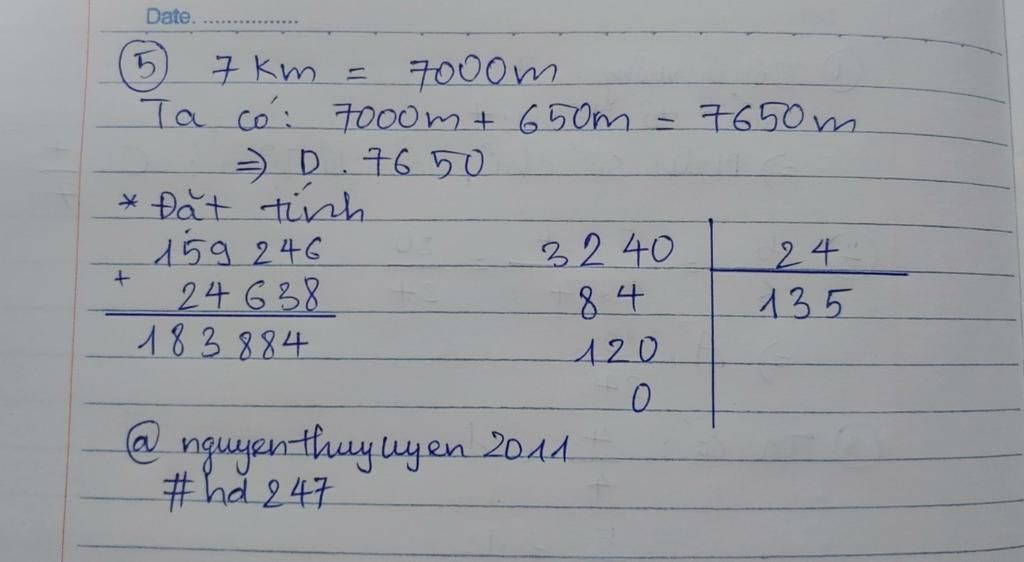 Date. ................
⑤ 7 Km = 7000m
Ta có: 7000m + 650m = 7650m
⇒ D. 7650
* Đặt tính
159 246
+
24 638
183 884
3240 24
84 135
120
0
@ nguyenthuyuyen 2011
# hd 247